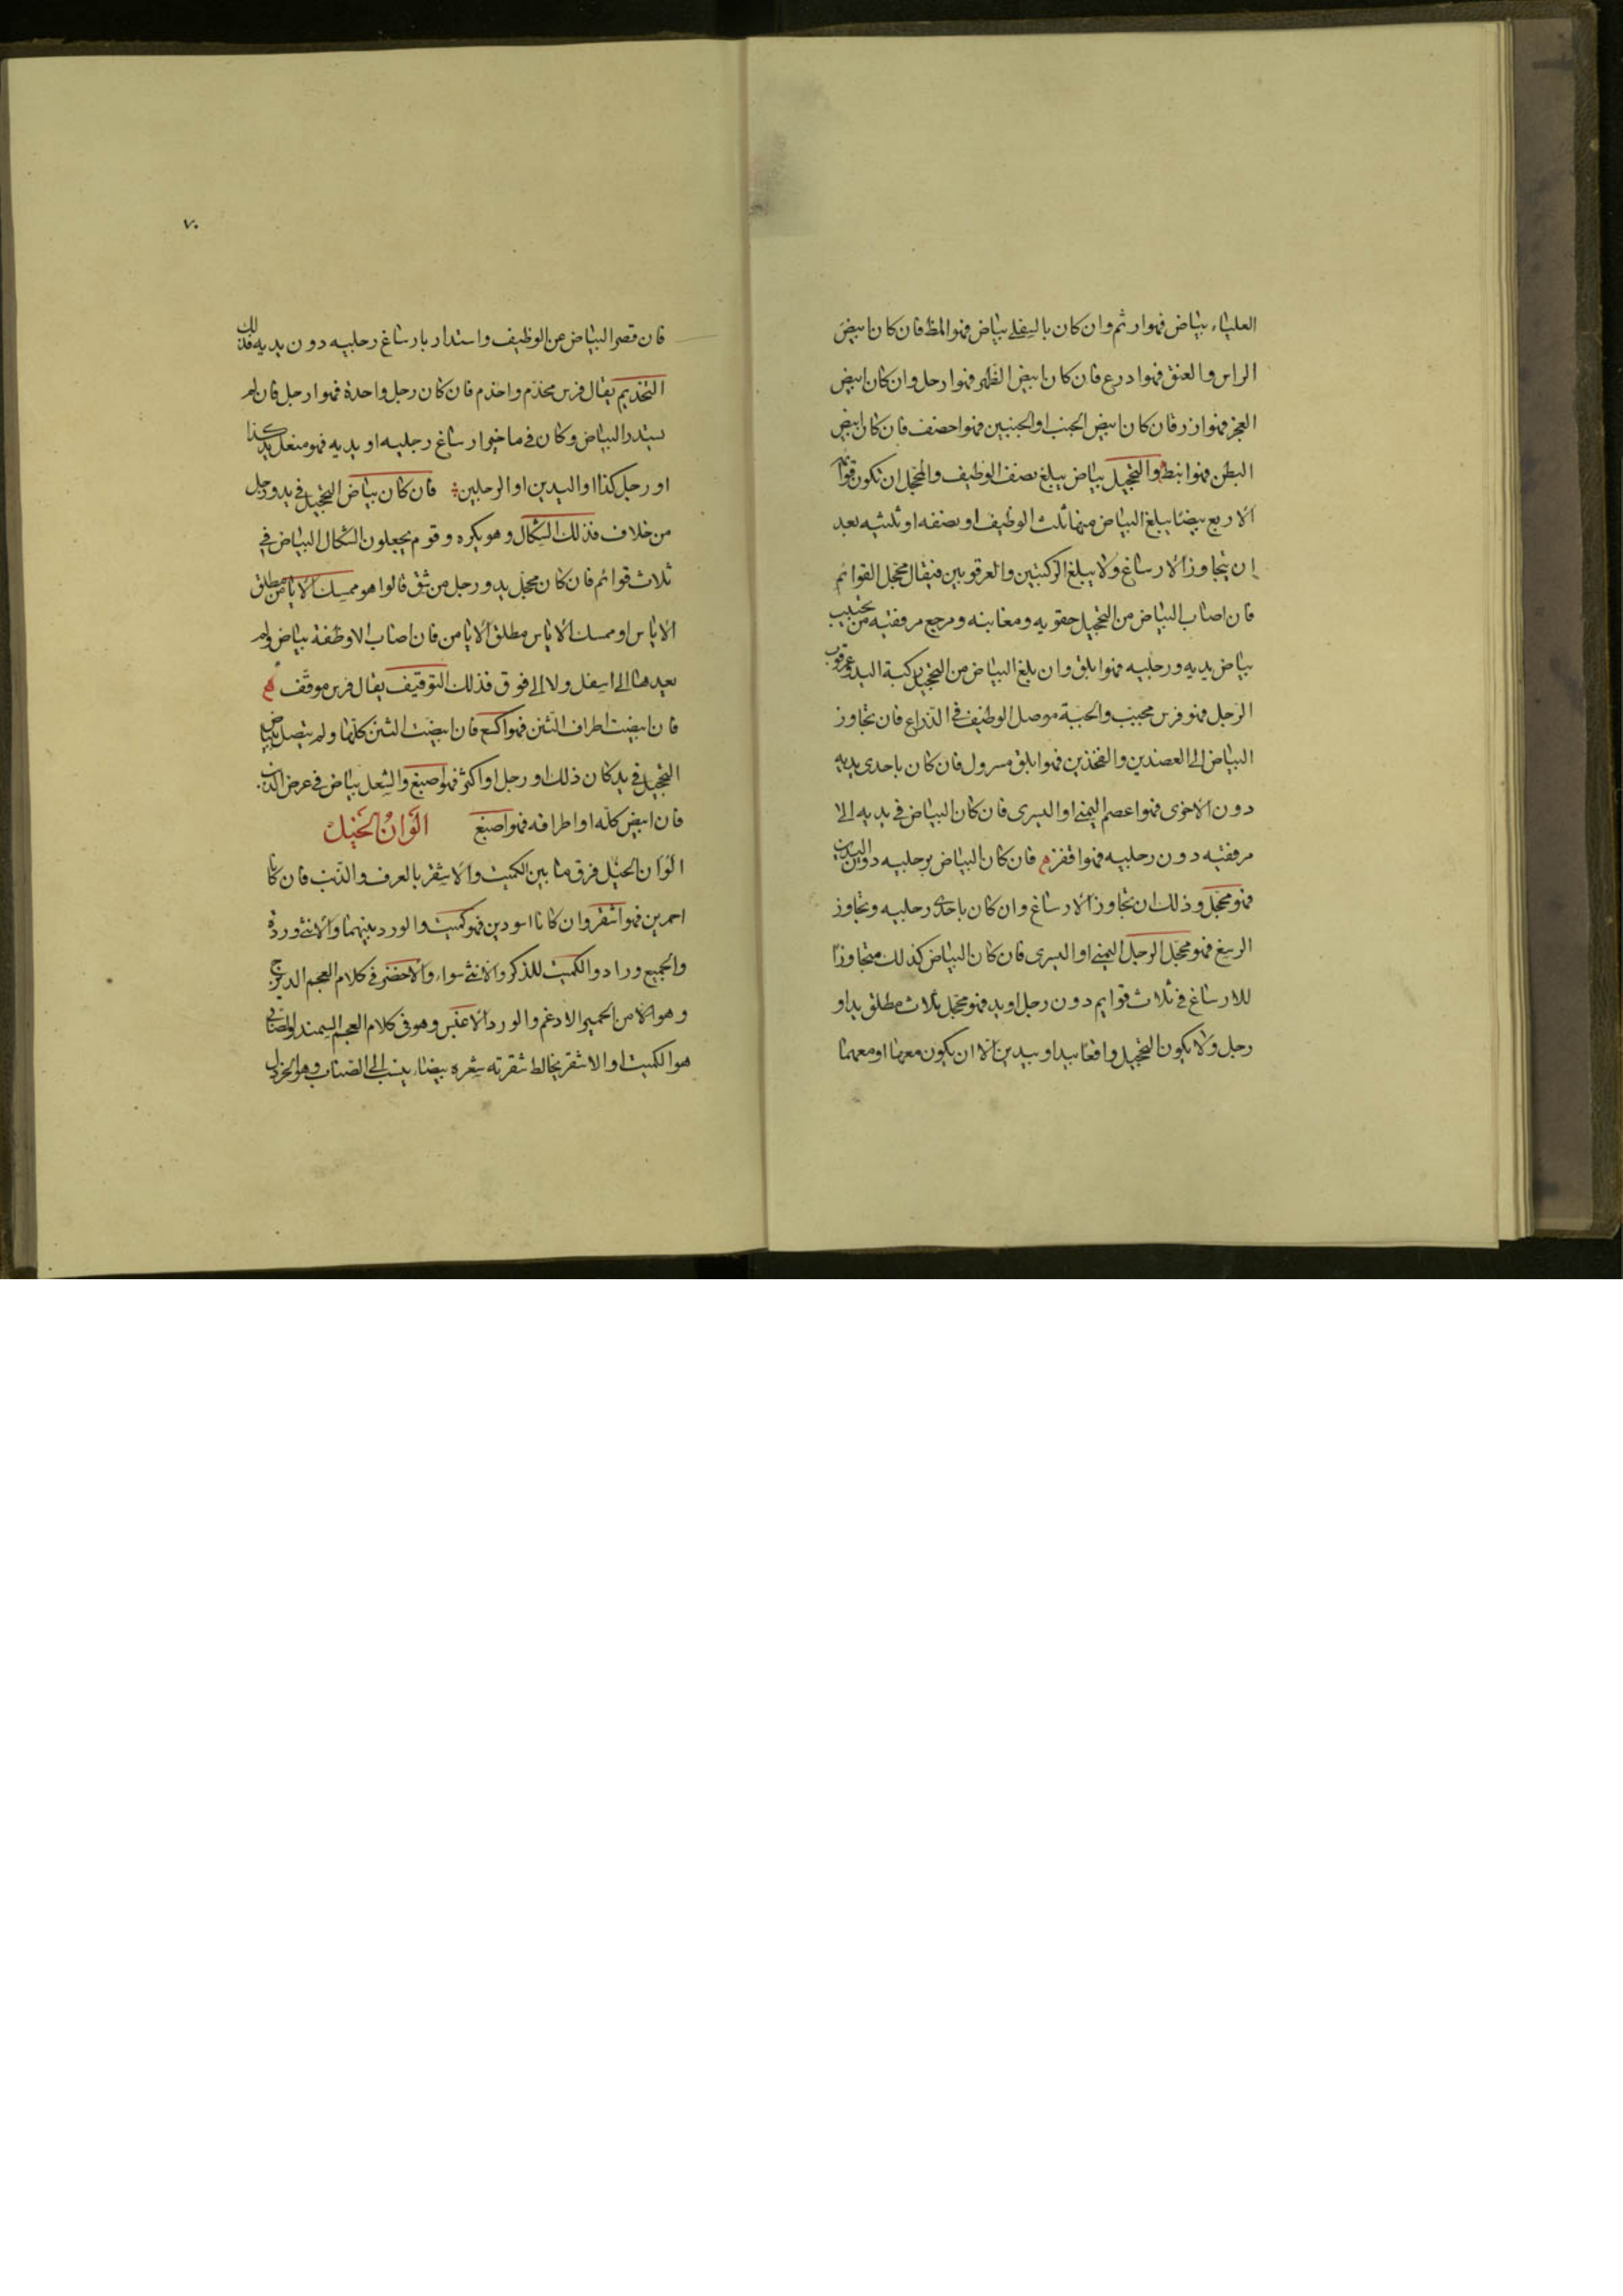 العلياء بياض فهو ارثم وان كان بالسفلى بياض فهو المظ فان كان ابيض
الراس والعنق فهو ادرع فان كان ابيض الظهر فهو ارحل وان كان ابيض
العجز فهو ازر فان كان ابيض الجنب او الجنبين فهو احصف فان كان ابيض
البطن فهو انبط والتحجيل بياض يبلغ نصف الوظيف والمحجل ان تكون قوائمه
الاربع بيضا يبلغ البياض منها ثلث الوظيف او نصفه او ثلثيه بعد
ان يتجاوز الارساغ ولا يبلغ الركبتين والعرقوبين فيقال محجل القوائم
فان اصاب البياض من التحجيل حقويه ومغابنه ومرجع مرفقيه من تحبيب
بياض يديه ورجليه فهو ابلق وان بلغ البياض من التحجيل ركبة اليد وعرقوب
الرجل فهو فرس مجبب والجبة موصل الوظيف في الذراع فان تجاوز
البياض الى العضدين والفخذين فهو ابلق مسرول فان كان باحدى يديه
دون الاخرى فهو اعصم اليمنى او اليسرى فان كان البياض في يديه الى
مرفقيه دون رجليه فهو اقفز فان كان البياض برجليه دون اليدين
فهو محجل وذلك ان تجاوز الارساغ وان كان باحدى رجليه وتجاوز
الرسغ فهو محجل الرجل اليمنى او اليسرى فان كان البياض كذلك متجاوزا
للارساغ في ثلاث قوايم دون رجل او يد فهو محجل ثلاث مطلق يد او
رجل ولا يكون التحجيل واقعا بيد او بيدين الا ان يكون معها او معهما
٧٠
فان قصر البياض عن الوظيف واستدار بارساغ رجليه دون يديه فذلك
التخديم يقال فرس مخدم واخدم فان كان رجل واحدة فهو ارجل فان لم
يستدر البياض وكان في ماخير ارساغ رجليه او يديه فهو منعل يد كذا
او رجل كذا او اليدين او الرجلين فان كان بياض التحجيل في يد ورجل
من خلاف فذلك الشكال وهو يكره وقوم يجعلون الشكال البياض في
ثلاث قوائم فان كان محجل يد ورجل من شق قالوا هو ممسك الايامن مطلق
الاياسر او ممسك الاياسر مطلق الايامن فان اصاب الاوظفة بياض ولم
يعدها الى اسفل ولا الى فوق فذلك التوقيف يقال فرس موقف
فان ابيضت اطراف الثنن فهو اكسع فان ابيضت الثنن كلها ولم يتصل ببياض
التحجيل في يد كان ذلك او رجل او اكثر فهو اصبغ والشعل بياض في عرض الذنب
فان ابيض كله او اطرافه فهو اصبغ الوان الخيل
الوان الخيل فرق ما بين الكميت والاشقر بالعرف والذنب فان كانا
احمرين فهو اشقر وان كانا اسودين فهو كميت والورد بينهما والانثى وردة
والجميع وراد والكميت للذكر والانثى سواء والاخضر في كلام العجم الديزج
وهو الا من الحمير الادغم والورد الاغبس وهو في كلام العجم السمند والصنابي
هو الكميت او الاشقر يخالط شقرته شعره بيضاء ينسب الى الصناب وهو الخردل